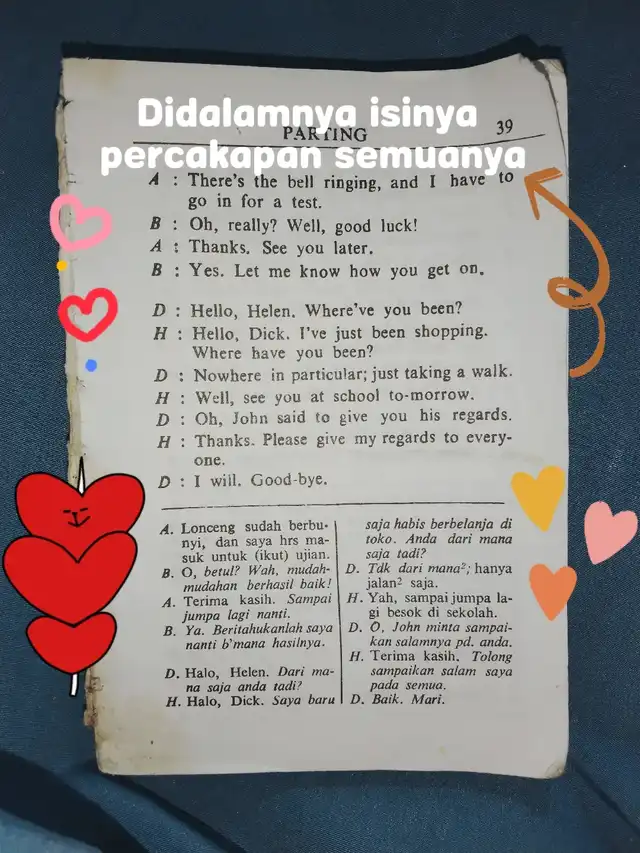 Didalamnya isinya
percakapan semuanya
PARTING 39
A : There's the bell ringing, and I have to
go in for a test.
B : Oh, really? Well, good luck!
A : Thanks. See you later.
B : Yes. Let me know how you get on.
D : Hello, Helen. Where've you been?
H : Hello, Dick. I've just been shopping.
Where have you been?
D : Nowhere in particular; just taking a walk.
H : Well, see you at school to-morrow.
D : Oh, John said to give you his regards.
H : Thanks. Please give my regards to every-
one.
D : I will. Good-bye.
A. Lonceng sudah berbu-
nyi, dan saya hrs ma-
suk untuk (ikut) ujian.
B. O, betul? Wah, mudah-
mudahan berhasil baik!
A. Terima kasih. Sampai
jumpa lagi nanti.
B. Ya. Beritahukanlah saya
nanti b'mana hasilnya.
D. Halo, Helen. Dari ma-
na saja anda tadi?
H. Halo, Dick. Saya baru
saja habis berbelanja di
toko. Anda dari mana
saja tadi?
D. Tdk dari mana²; hanya
jalan² saja.
H. Yah, sampai jumpa la-
gi besok di sekolah.
D. O, John minta sampai-
kan salamnya pd. anda.
H. Terima kasih. Tolong
sampaikan salam saya
pada semua.
D. Baik. Mari.